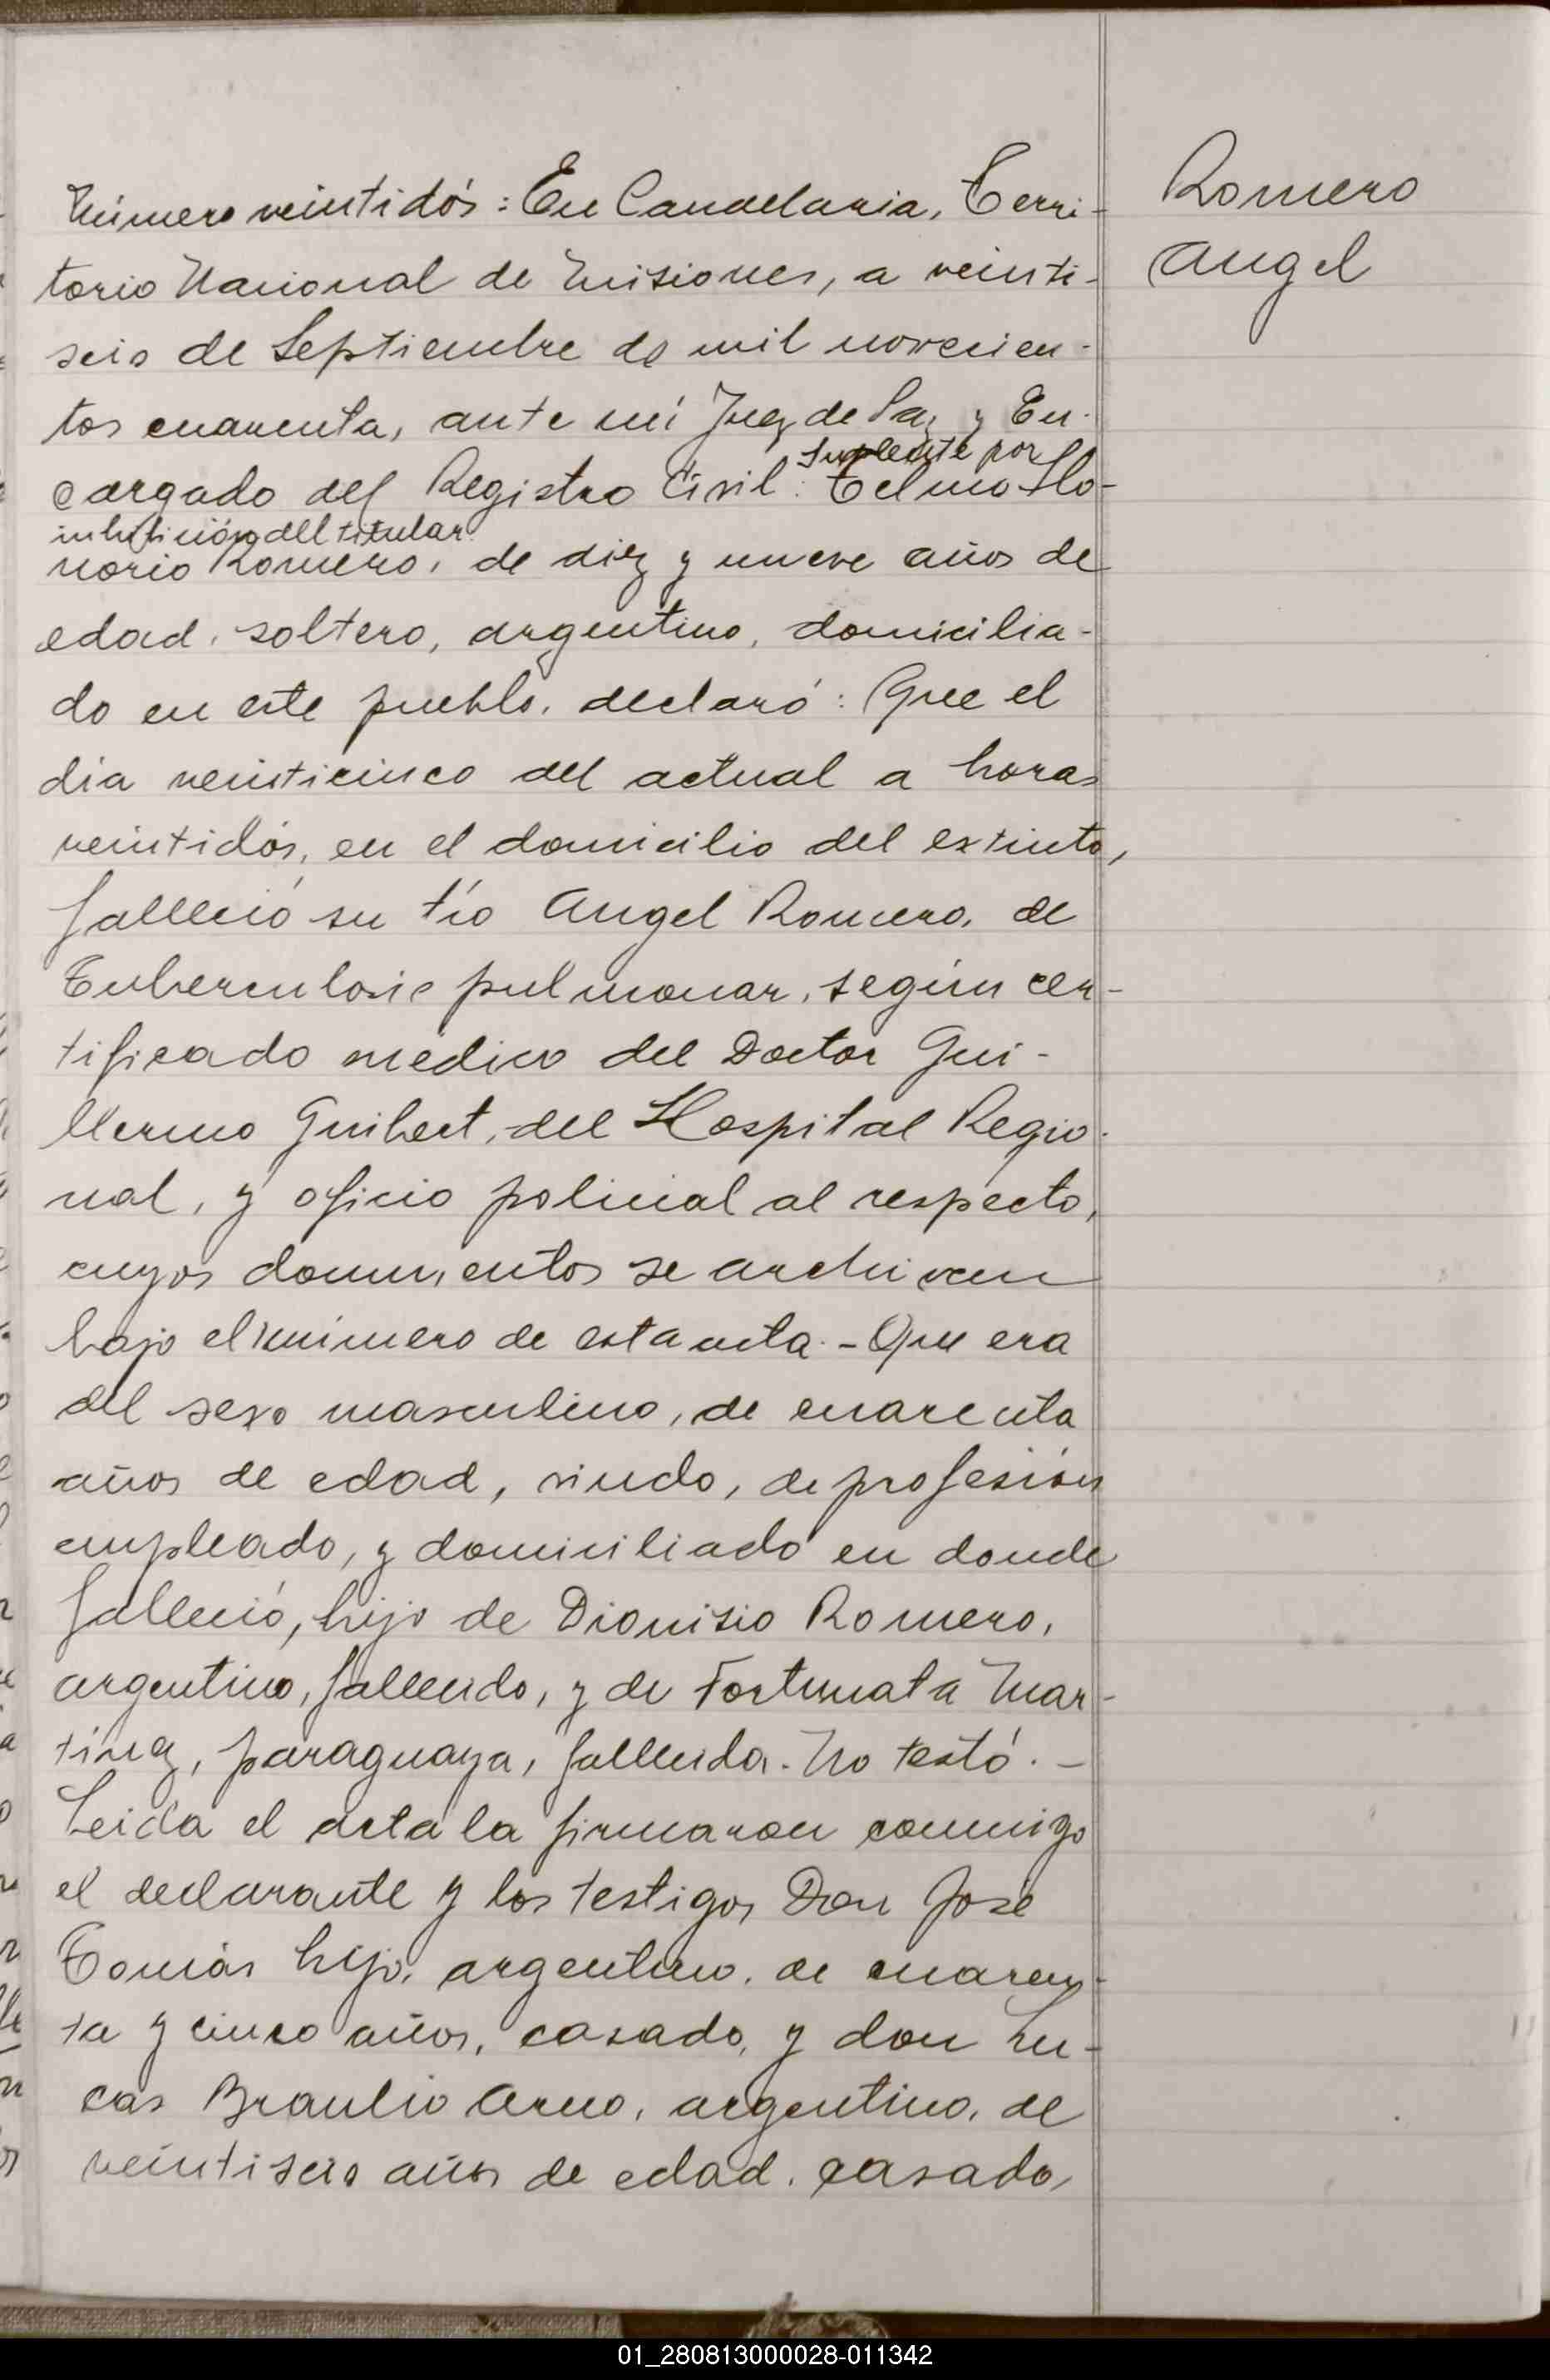 Romero
Angel
Número veintidós: En Candelaria, Terri-
torio Nacional de Misiones, a veinti-
seis de Septiembre de mil novecien-
tos cuarenta, ante mí Juez de Paz y En-
suplente por
cargado del Registro Civil: Telmo Ho-
inhibición del titular
norio Romero, de diez y nueve años de
edad, soltero, argentino, domicilia-
do en este pueblo, declaró: Que el
día veinticinco del actual a horas
veintidós, en el domicilio del extinto,
falleció su tío Angel Romero, de
Tuberculosis pulmonar, según cer-
tificado medico del Doctor Gui-
llermo Guibert, del Hospital Regio-
nal, y oficio policial al respecto,
cuyos documentos se archivan
bajo el número de esta acta.- Que era
del sexo masculino, de cuarenta
años de edad, viudo, de profesión
empleado, y domiciliado en donde
falleció, hijo de Dionisio Romero,
argentino, fallecido, y de Fortunata Mar-
tínez, paraguaya, fallecida. No testó.-
Leida el acta la firmaron conmigo
el declarante y los testigos Don José
Tomás hijo, argentino, de cuaren-
ta y cinco años, casado, y don Lu-
cas Braulio argentino, de
veintiseis años de edad, casado,
01_280813000028-011342